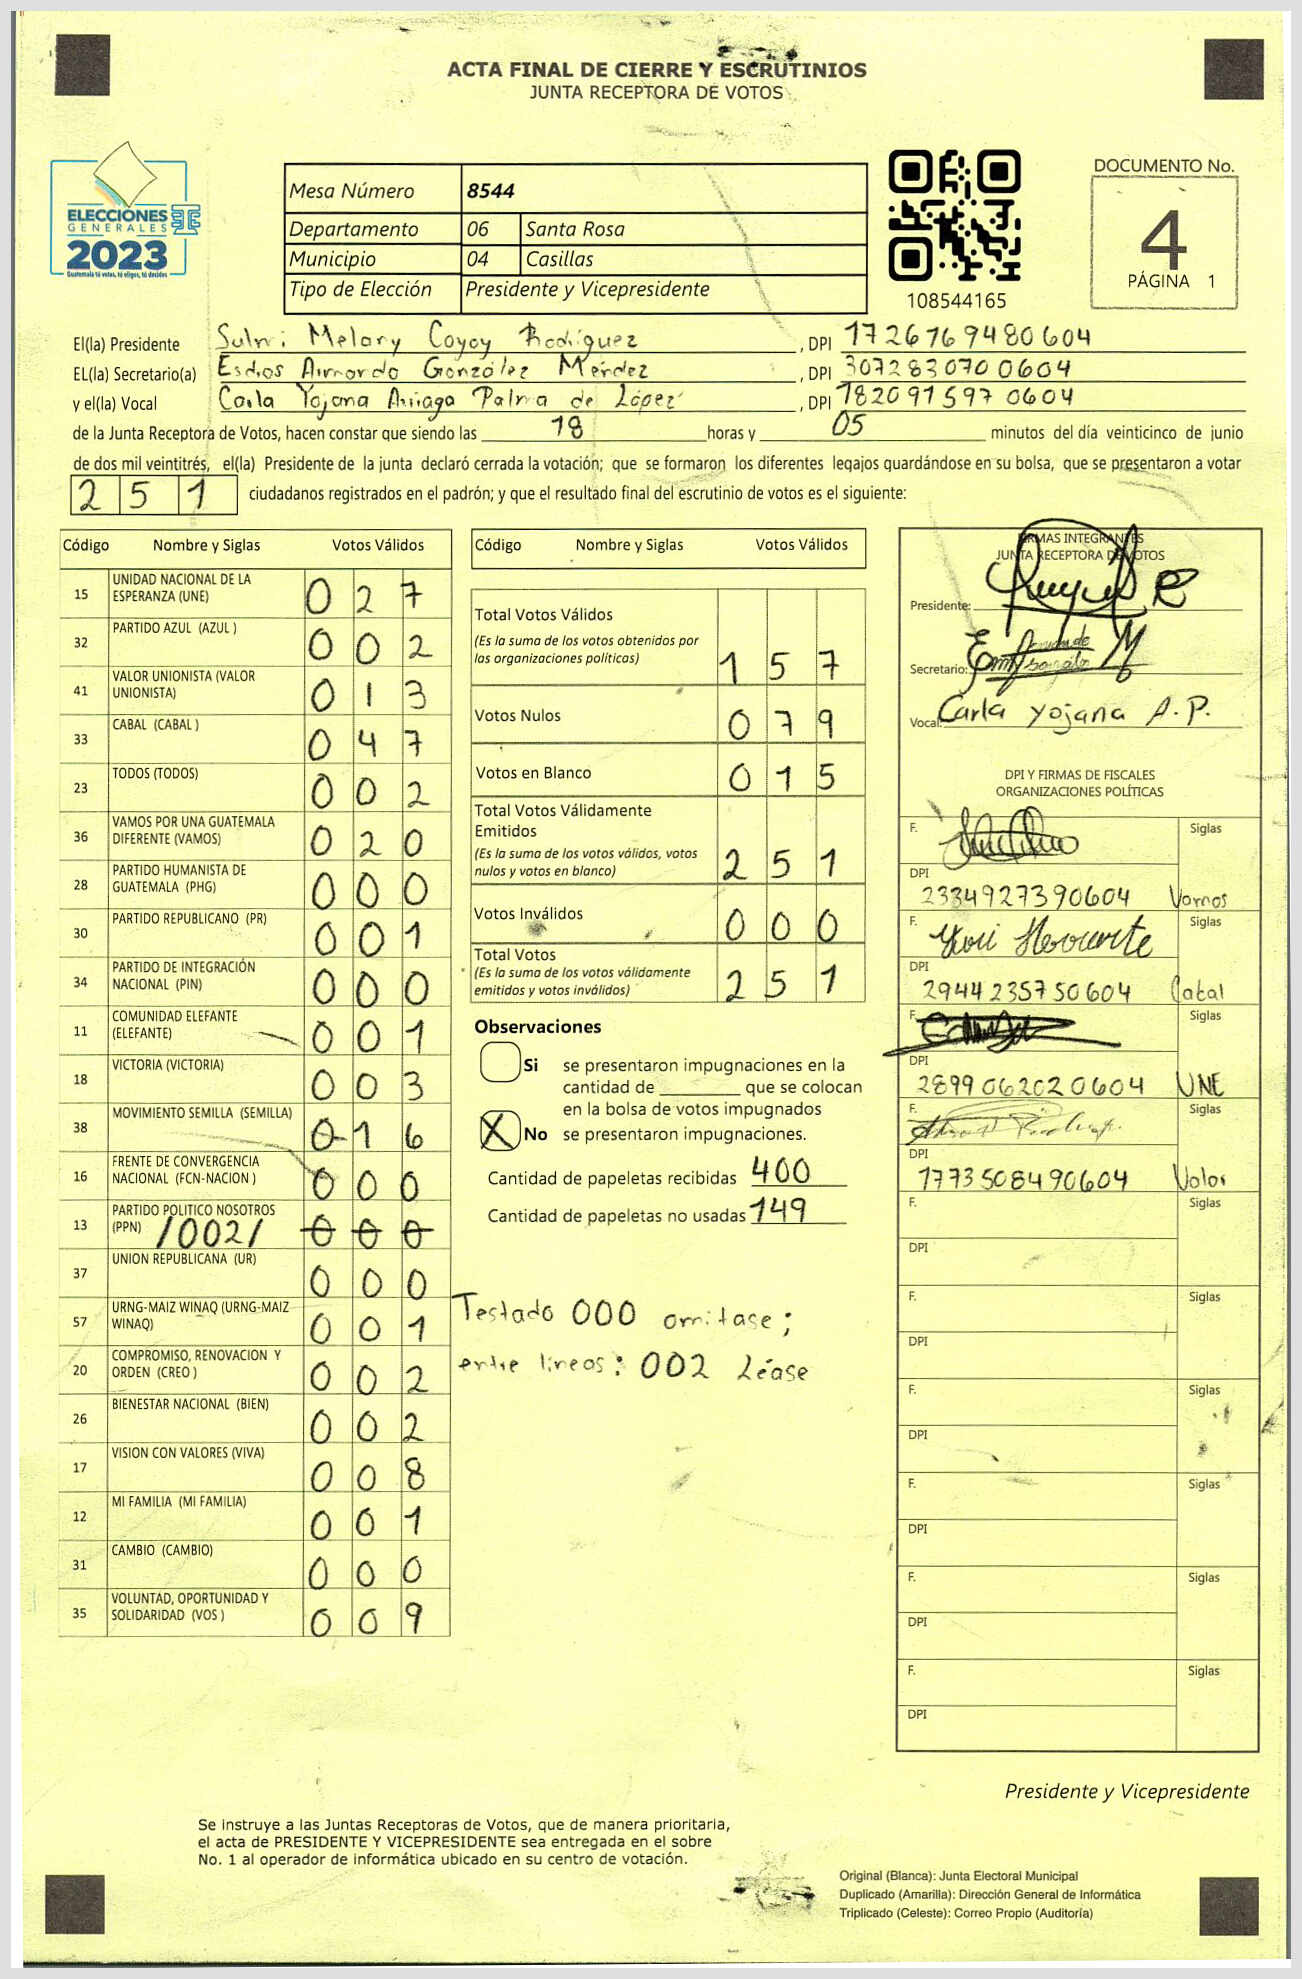 ACTA FINAL DE CIERRE Y ESCRUTINIOS
JUNTA RECEPTORA DE VOTOS
ELECCIONES
GENERALES
2023
Guatemala tú votas, tú eliges, tú decides
Mesa Número 8544
Departamento 06 Santa Rosa
Municipio 04 Casillas
Tipo de Elección Presidente y Vicepresidente
108544165
DOCUMENTO No.
4
PÁGINA 1
El(la) Presidente Sulmi Melany Coyoy Rodríguez, DPI 1726769480604
EL(la) Secretario(a) Esdios Armando González Méndez, DPI 3072830700604
y el(la) Vocal Carla Yojana Arriaga Palma de López, DPI 1820915970604
de la Junta Receptora de Votos, hacen constar que siendo las 18 horas y 05 minutos del día veinticinco de junio
de dos mil veintitrés, el(la) Presidente de la junta declaró cerrada la votación; que se formaron los diferentes legajos guardándose en su bolsa, que se presentaron a votar
251 ciudadanos registrados en el padrón; y que el resultado final del escrutinio de votos es el siguiente:
Código Nombre y Siglas Votos Válidos
15 UNIDAD NACIONAL DE LA ESPERANZA (UNE) 027
32 PARTIDO AZUL (AZUL ) 002
41 VALOR UNIONISTA (VALOR UNIONISTA) 013
33 CABAL (CABAL ) 047
23 TODOS (TODOS) 002
36 VAMOS POR UNA GUATEMALA DIFERENTE (VAMOS) 020
28 PARTIDO HUMANISTA DE GUATEMALA (PHG) 000
30 PARTIDO REPUBLICANO (PR) 001
34 PARTIDO DE INTEGRACIÓN NACIONAL (PIN) 000
11 COMUNIDAD ELEFANTE (ELEFANTE) 001
18 VICTORIA (VICTORIA) 003
38 MOVIMIENTO SEMILLA (SEMILLA) 016
16 FRENTE DE CONVERGENCIA NACIONAL (FCN-NACION ) 000
13 PARTIDO POLITICO NOSOTROS (PPN) /002/ 000
37 UNION REPUBLICANA (UR) 000
57 URNG-MAIZ WINAQ (URNG-MAIZ WINAQ) 001
20 COMPROMISO, RENOVACION Y ORDEN (CREO ) 002
26 BIENESTAR NACIONAL (BIEN) 002
17 VISION CON VALORES (VIVA) 008
12 MI FAMILIA (MI FAMILIA) 001
31 CAMBIO (CAMBIO) 000
35 VOLUNTAD, OPORTUNIDAD Y SOLIDARIDAD (VOS ) 009
Código Nombre y Siglas Votos Válidos
Total Votos Válidos
(Es la suma de los votos obtenidos por
las organizaciones políticas) 157
Votos Nulos 079
Votos en Blanco 015
Total Votos Válidamente
Emitidos
(Es la suma de los votos válidos, votos
nulos y votos en blanco) 251
Votos Inválidos 000
Total Votos
(Es la suma de los votos válidamente
emitidos y votos inválidos) 251
Observaciones
Si se presentaron impugnaciones en la
cantidad de ________ que se colocan
en la bolsa de votos impugnados
X No se presentaron impugnaciones.
Cantidad de papeletas recibidas 400
Cantidad de papeletas no usadas 149
Testado 000 omitase;
entre lineas: 002 Léase
FIRMAS INTEGRANTES
JUNTA RECEPTORA DE VOTOS
Presidente:
Secretario:
Vocal: Carla Yojana A.P.
DPI Y FIRMAS DE FISCALES
ORGANIZACIONES POLÍTICAS
F. Siglas
DPI
2334927390604 Vamos
F. Siglas
DPI
2944235750604 Cabal
F. Siglas
DPI
2899062020604 UNE
F. Siglas
DPI
1773508490604 Valor
F. Siglas
DPI
F. Siglas
DPI
F. Siglas
DPI
F. Siglas
DPI
F. Siglas
DPI
F. Siglas
DPI
Presidente y Vicepresidente
Se instruye a las Juntas Receptoras de Votos, que de manera prioritaria,
el acta de PRESIDENTE Y VICEPRESIDENTE sea entregada en el sobre
No. 1 al operador de informática ubicado en su centro de votación.
Original (Blanca): Junta Electoral Municipal
Duplicado (Amarilla): Dirección General de Informática
Triplicado (Celeste): Correo Propio (Auditoría)